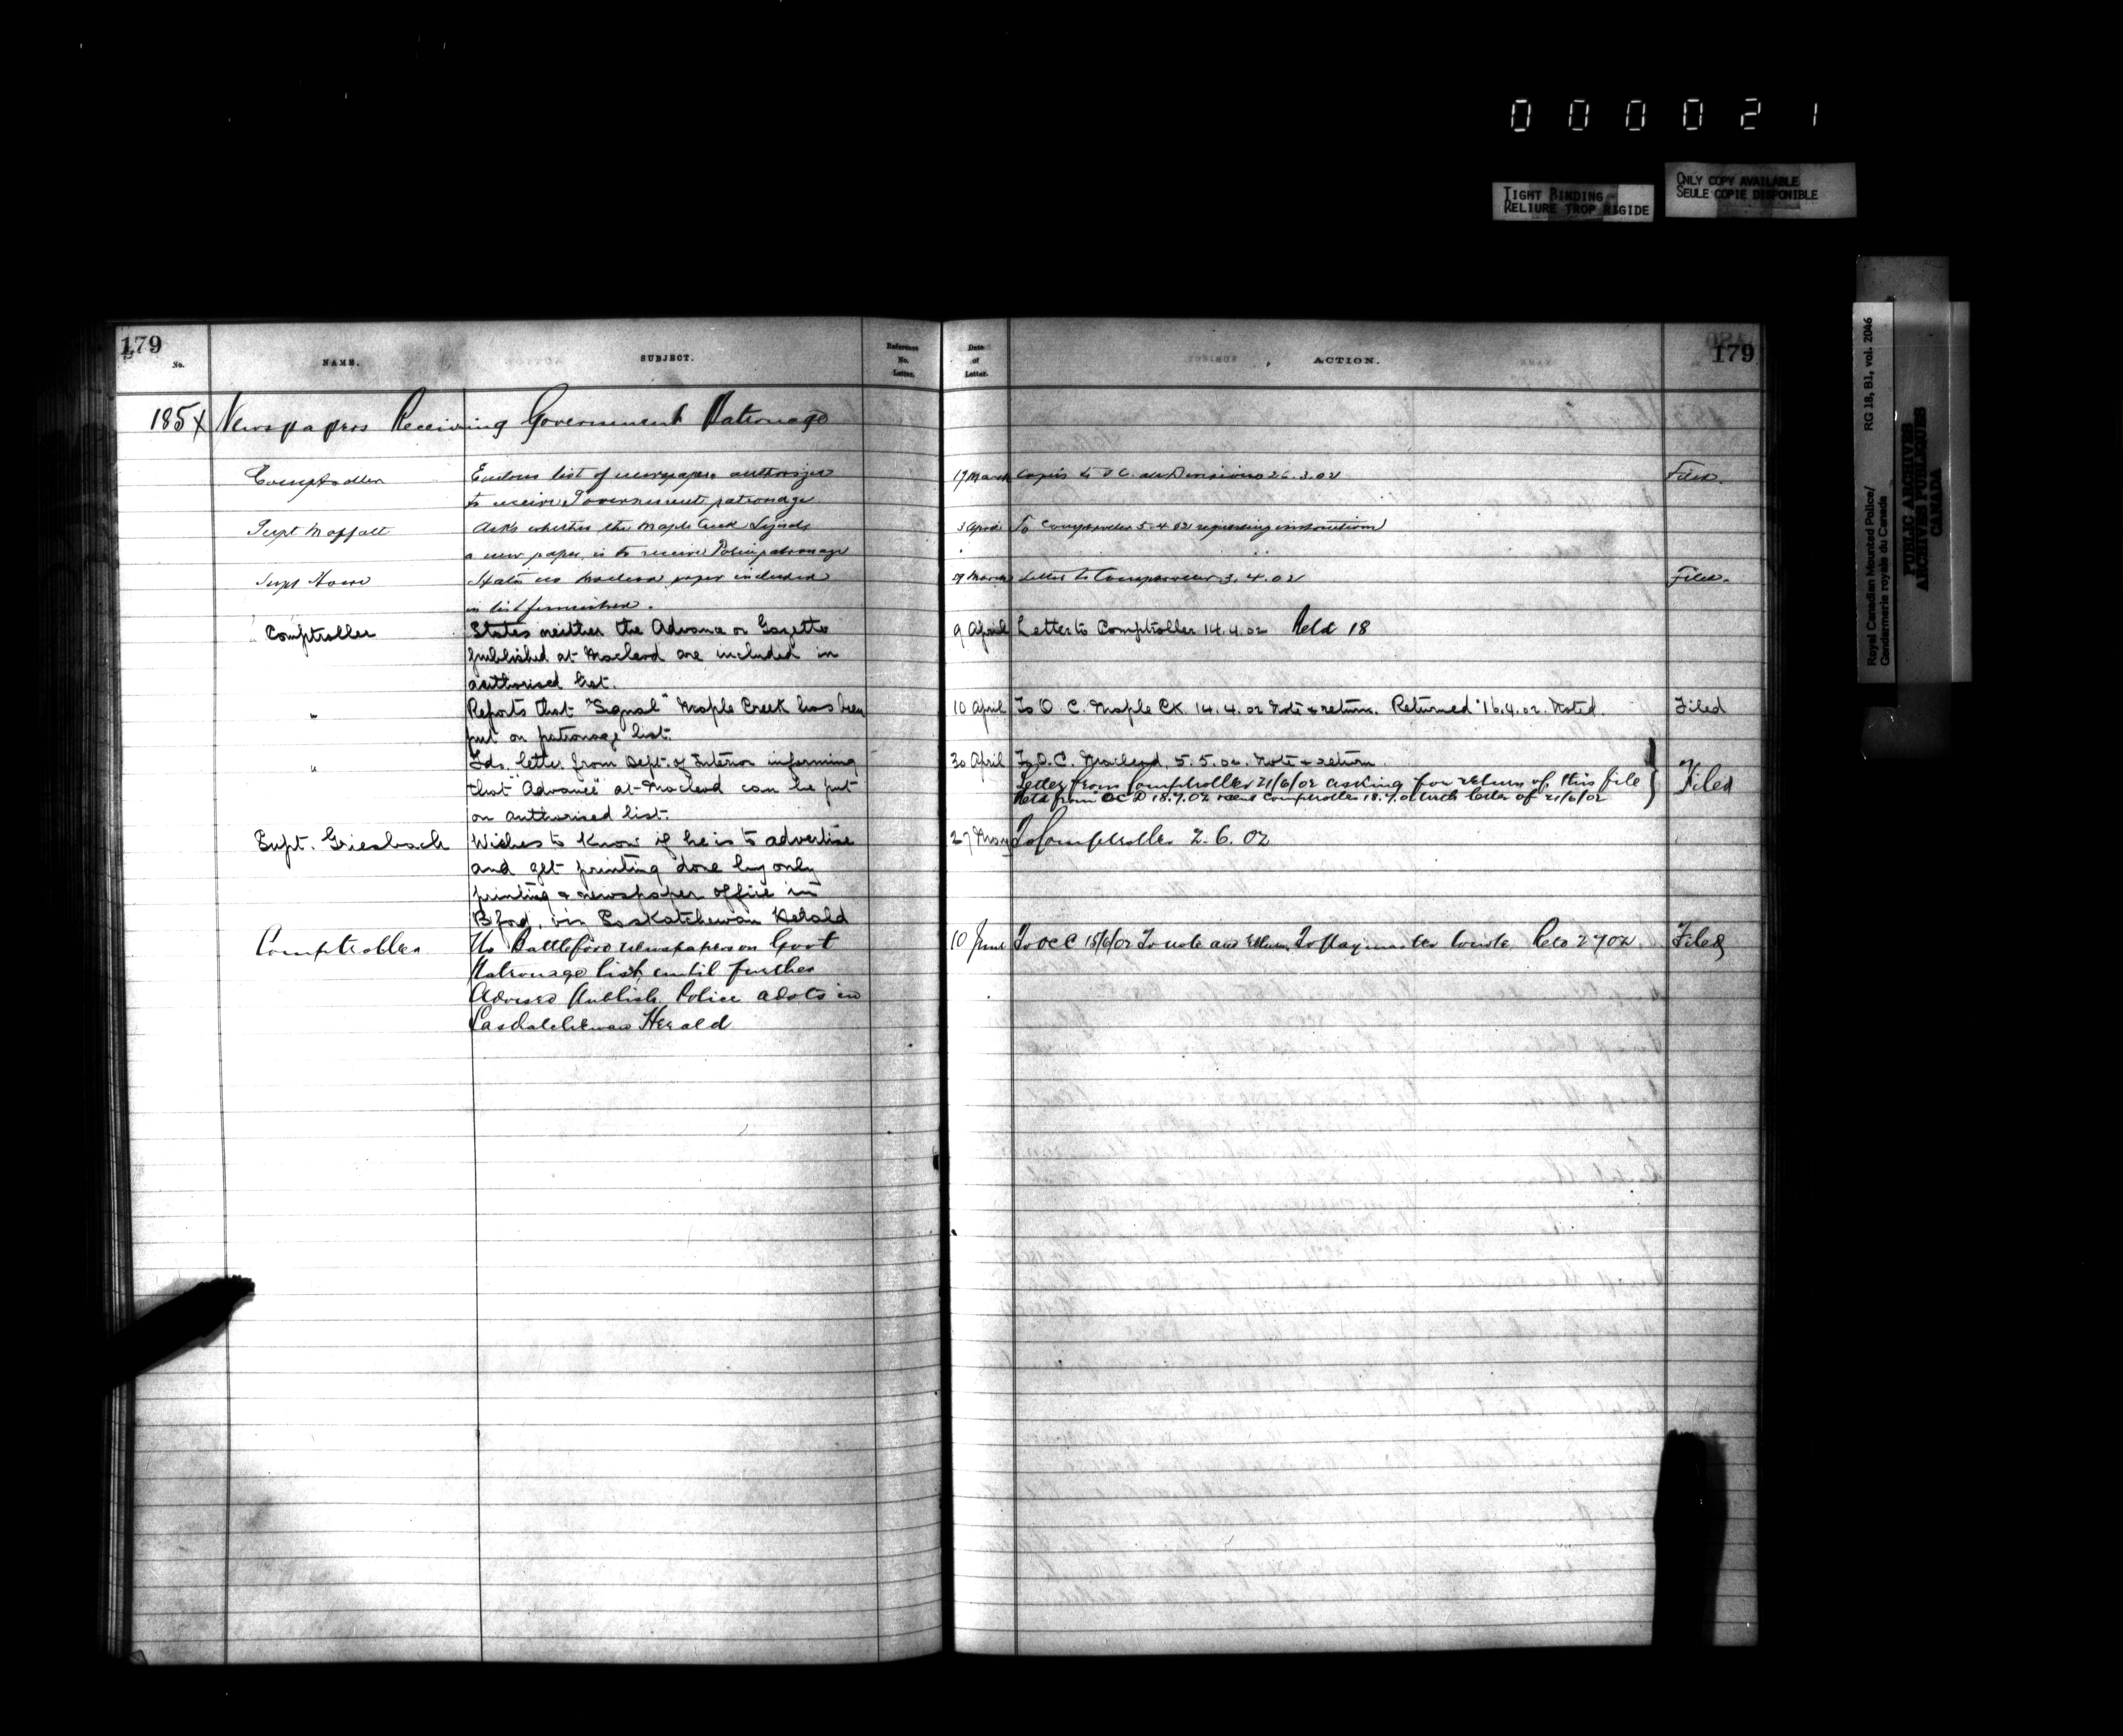 000021
TIGHT BINDING
RELIURE TROP RIGIDE
ONLY COPY AVAILABLE
SEULE COPIE DISPONIBLE
Royal Canadian Mounted Police/ RG 18, B1, vol. 2046
Gendarmerie royale du Canada
PUBLIC ARCHIVES
ARCHIVES PUBLIQUES
CANADA
179
No. NAME. SUBJECT. Reference No. Letter. Date of Letter. ACTION. 179
185 Newspapers Receiving Government Patronage
Comptroller Encloses list of newspapers authorized 17 March Copies to O C. all Divisions 26.3.02 Filed.
to receive Government patronage
Supt Moffatt Asks whether the Maple Creek Signal 3 April To Comptroller 5.4.02 requesting instructions
a new paper, is to receive Police patronage
Supt Howe States no Macleod paper included 29 March Letter to Comptroller 3.4.02 Filed.
in list furnished.
Comptroller States neither the Advance or Gazette 9 April Letter to Comptroller 14.4.02 Retd 18
published at Macleod are included in
authorised list.
" Reports that "Signal" Maple Creek has been 10 April To O. C. Maple Ck. 14.4.02 Note & return. Returned 16.4.02. Noted. Filed
put on patronage list.
" Fds. letter from Dept. of Interior informing 30 April To O.C. Macleod, 5.5.02. Note & return.
that "Advance" at Macleod can be put Letter from Comptroller 21/6/02 asking for return of this file Filed
on authorised list. Retd from OC D 18.7.02 Comptroller 18.7.02 with letter of 21/6/02
Supt. Griesbach Wishes to know if he is to advertise 27 May To Comptroller 2.6.02
and get printing done by only
printing & newspaper office in
Bford, viz Saskatchewan Herald
Comptroller No Battleford newspaper on Govt 10 June To OC C 15/6/02 To note and return, To Paymaster to note. Retd 2 7 02 Filed
Patronage list, until further
Advised Publish Police advts in
Saskatchewan Herald